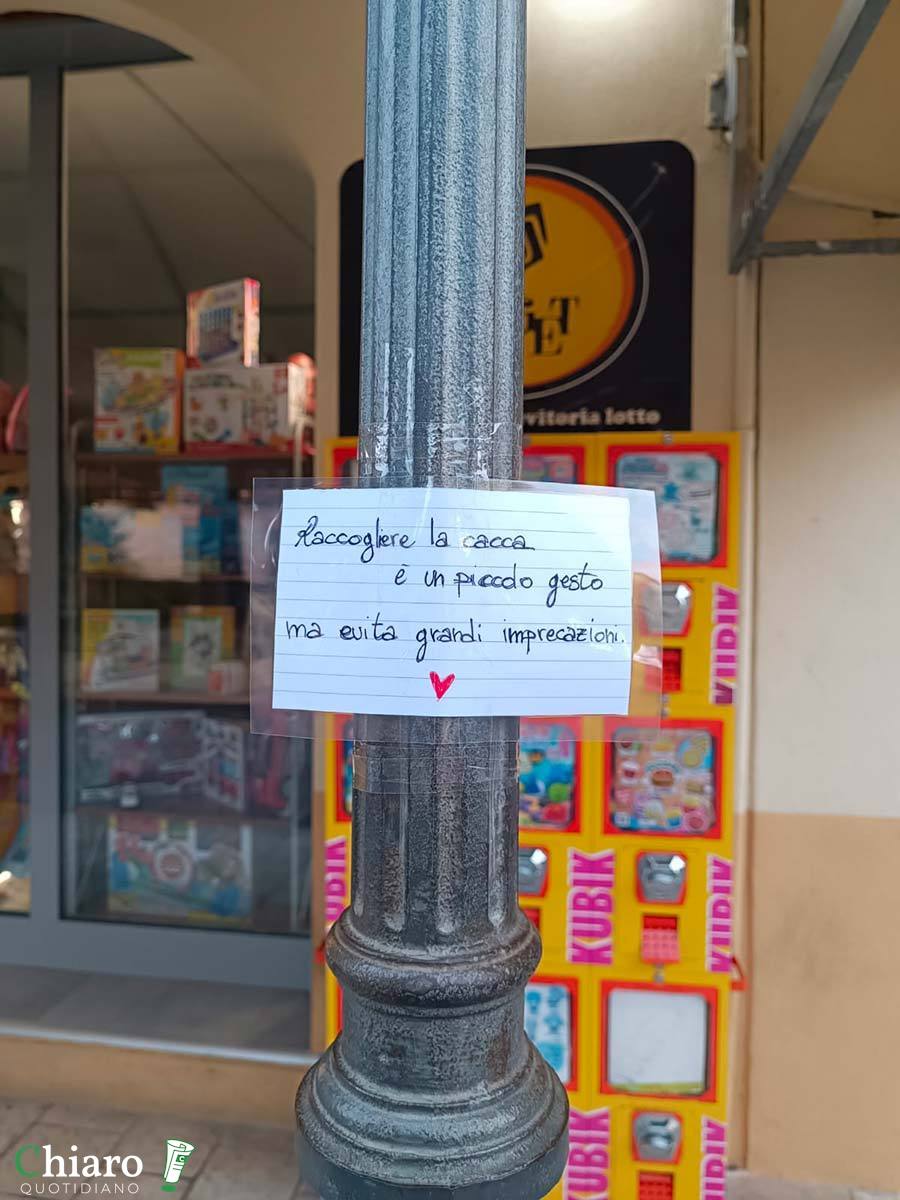 vitoria lotto
Raccogliere la cacca
è un piccolo gesto
ma evita grandi imprecazioni.
KUBIK
KUBIK
KUBIK
KUBIK
KUBIK
Chiaro
QUOTIDIANO